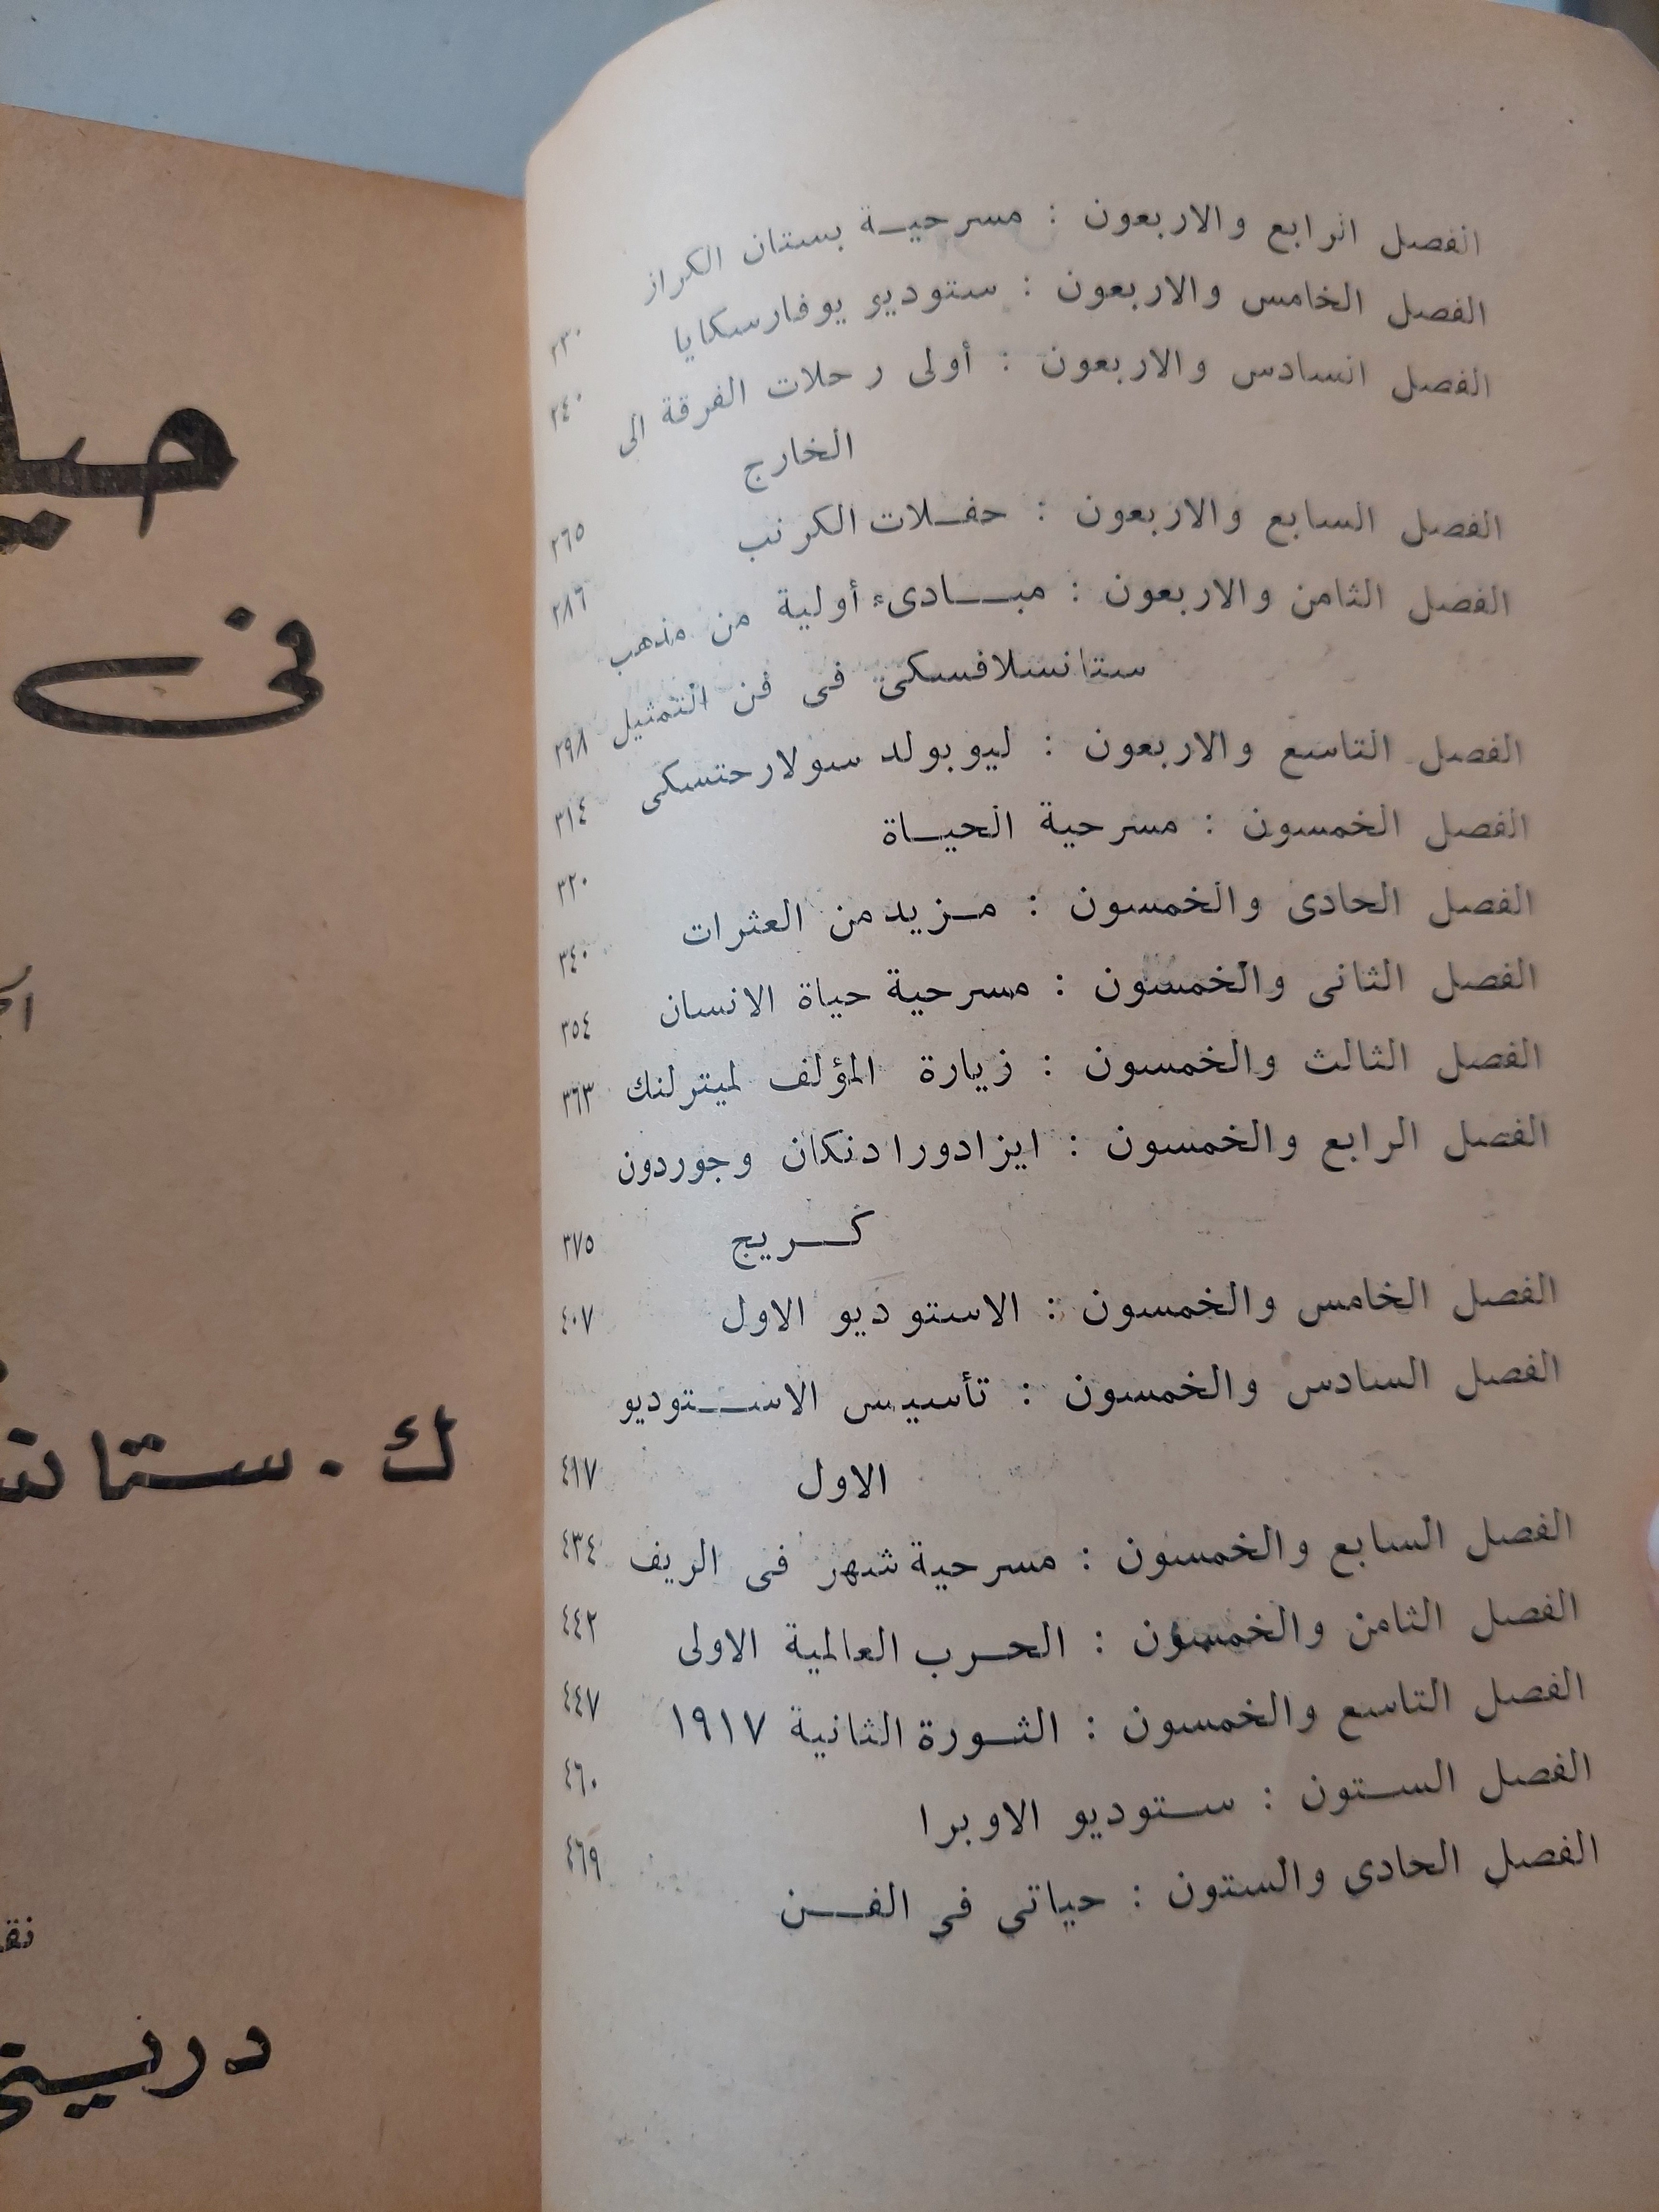 الفصل الرابع والاربعون : مسرحية بستان الكراز ٢٣٠
الفصل الخامس والاربعون : ستوديو يوفارسكايا ٢٤٠
الفصل السادس والاربعون : أولى رحلات الفرقة الى
الخارج ٢٦٥
الفصل السابع والاربعون : حفلات الكرنب ٢٨٦
الفصل الثامن والاربعون : مبادىء أولية من مذهب
ستانسلافسكى فى فن التمثيل ٢٩٨
الفصل التاسع والاربعون : ليوبولد سولارحتسكى ٣١٤
الفصل الخمسون : مسرحية الحياة ٣٢٠
الفصل الحادى والخمسون : مزيد من العثرات ٣٤٠
الفصل الثانى والخمسون : مسرحية حياة الانسان ٣٥٤
الفصل الثالث والخمسون : زيارة المؤلف لميترلنك ٣٦٣
الفصل الرابع والخمسون : ايزادورا دنكان وجوردون
كريج ٣٧٥
الفصل الخامس والخمسون : الاستوديو الاول ٤٠٧
الفصل السادس والخمسون : تأسيس الاستوديو
الاول ٤١٧
الفصل السابع والخمسون : مسرحية شهر فى الريف ٤٣٤
الفصل الثامن والخمسون : الحرب العالمية الاولى ٤٤٢
الفصل التاسع والخمسون : الثورة الثانية ١٩١٧ ٤٤٧
الفصل الستون : ستوديو الاوبرا ٤٦٠
الفصل الحادى والستون : حياتى فى الفن ٤٦٩
فى
ك . ستانس